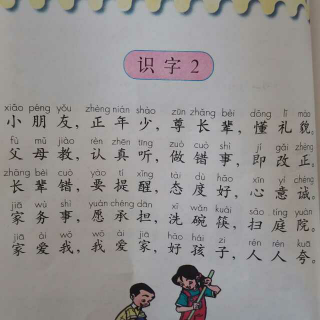 识字2
xiǎo péng yǒu zhèng nián shào zūn zhǎng bèi dǒng lǐ mào
小朋友，正年少，尊长辈，懂礼貌。
fù mǔ jiào rèn zhēn tīng zuò cuò shì jí gǎi zhèng
父母教，认真听，做错事，即改正。
zhǎng bèi cuò yào tí xǐng tài dù hǎo xīn yì chéng
长辈错，要提醒，态度好，心意诚。
jiā wù shì yuàn chéng dān xǐ wǎn kuài sǎo tíng yuàn
家务事，愿承担，洗碗筷，扫庭院。
jiā ài wǒ wǒ ài jiā hǎo hái zi rén rén kuā
家爱我，我爱家，好孩子，人人夸。